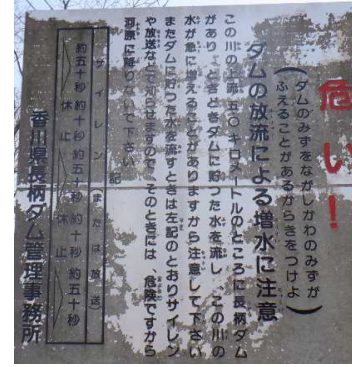 危い!
(ダムのみずをながしかわのみずが
ふえることがあるからきをつけよ)
ダムの放流による増水に注意
この川の上流五.〇キロメートルのところに長柄ダム
があり、ときどきダムに貯った水を流し、この川の
水が急に増えることがありますから注意して下さい
またダムに貯った水を流すときは左記のとおりサイレン
や放送などで知らせますので、そのときには、危険ですから
河原に降りないで下さい
記
サイレン(または放送)
約五十秒 約十秒 約五十秒 約十秒 約五十秒
休止 休止
香川県長柄ダム管理事務所